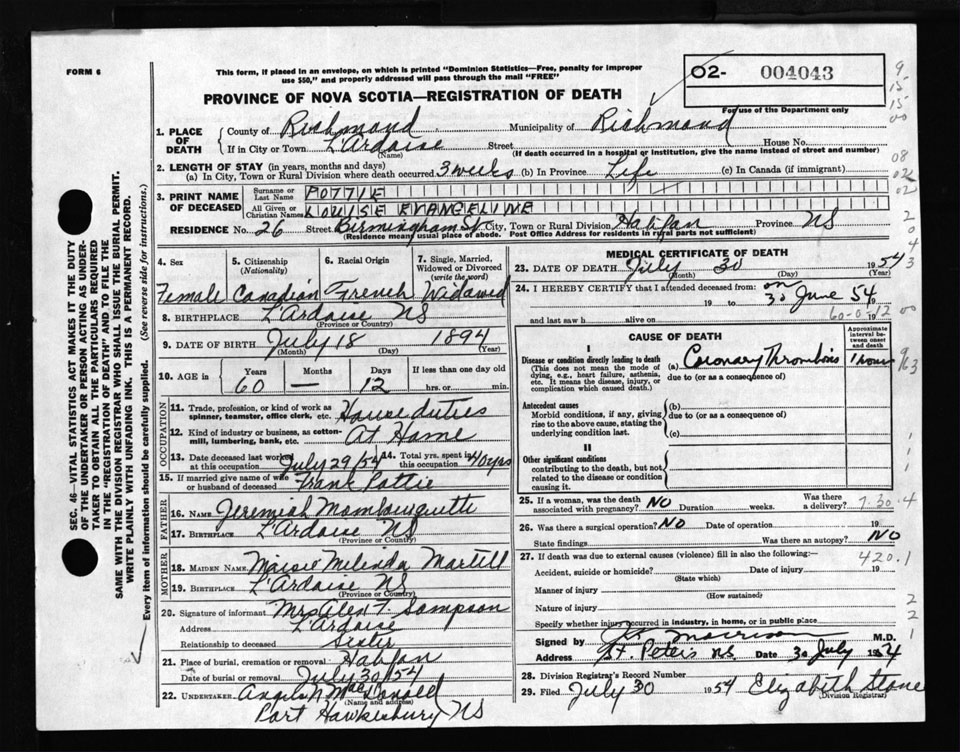 FORM 6
This form, if placed in an envelope, on which is printed "Dominion Statistics—Free, penalty for improper
use $50," and properly addressed will pass through the mail "FREE"
02- 004043
For use of the Department only
PROVINCE OF NOVA SCOTIA—REGISTRATION OF DEATH
1. PLACE OF DEATH { County of Richmond Municipality of Richmond
If in City or Town L'Ardoise Street House No.
(Name) (If death occurred in a hospital or institution, give the name instead of street and number)
2. LENGTH OF STAY (in years, months and days)
(a) In City, Town or Rural Division where death occurred 3 weeks (b) In Province Life (c) In Canada (if immigrant)
3. PRINT NAME OF DECEASED { Surname or Last Name POTTIE
All Given or Christian Names LOUISE EVANGELINE
RESIDENCE No. 26 Street Birmingham St. City, Town or Rural Division Halifax Province NS
(Residence means usual place of abode. Post Office Address for residents in rural parts not sufficient)
4. Sex 5. Citizenship (Nationality) 6. Racial Origin 7. Single, Married, Widowed or Divorced (write the word)
Female Canadian French Widowed
8. BIRTHPLACE L'Ardoise NS
(Province or Country)
9. DATE OF BIRTH July 18 1894
(Month) (Day) (Year)
10. AGE in { Years Months Days If less than one day old
60 — 12 hrs. or min.
OCCUPATION
11. Trade, profession, or kind of work as spinner, teamster, office clerk, etc. House duties
12. Kind of industry or business, as cotton-mill, lumbering, bank, etc. At Home
13. Date deceased last worked at this occupation July 29/54 14. Total yrs. spent in this occupation 40 yrs
15. If married give name of wife or husband of deceased Frank Pottie
FATHER
16. NAME Jeremiah Mombourquette
17. BIRTHPLACE L'Ardoise NS
(Province or Country)
MOTHER
18. MAIDEN NAME Melinda Martell
19. BIRTHPLACE L'Ardoise NS
(Province or Country)
20. Signature of informant Mrs Alex T. Sampson
Address L'Ardoise
Relationship to deceased Sister
21. Place of burial, cremation or removal Halifax
Date of burial or removal July 30/54
22. UNDERTAKER Angus MacDonald
(Name and address)
Port Hawkesbury NS
MEDICAL CERTIFICATE OF DEATH
23. DATE OF DEATH July 30 1954
(Month) (Day) (Year)
24. I HEREBY CERTIFY that I attended deceased from: on
19 to 30 June 54 19
and last saw h alive on 60-0-12 19
CAUSE OF DEATH
Approximate interval between onset and death
I
Disease or condition directly leading to death
(This does not mean the mode of dying, e.g., heart failure, asthenia, etc. It means the disease, injury, or complication which caused death.)
(a) Coronary Thrombosis 1 hour
due to (or as a consequence of)
Antecedent causes
Morbid conditions, if any, giving rise to the above cause, stating the underlying condition last.
(b)
due to (or as a consequence of)
(c)
II
Other significant conditions
contributing to the death, but not related to the disease or condition causing it.
25. If a woman, was the death associated with pregnancy? NO Duration weeks. Was there a delivery? 7-30-4
26. Was there a surgical operation? NO Date of operation 19
State findings Was there an autopsy? NO
27. If death was due to external causes (violence) fill in also the following: 420.1
Accident, suicide or homicide? Date of injury 19
(State which)
Manner of injury
(How sustained)
Nature of injury
Specify whether injury occurred in industry, in home, or in public place
Signed by Morrison M.D.
Address St. Peters NS. Date 30 July 1954
28. Division Registrar's Record Number
29. Filed July 30 1954 Elizabeth Stone
(Division Registrar)
SEC. 46—VITAL STATISTICS ACT MAKES IT THE DUTY
OF THE UNDERTAKER OR PERSON ACTING AS UNDER-
TAKER TO OBTAIN ALL THE PARTICULARS REQUIRED
IN THE "REGISTRATION OF DEATH" AND TO FILE THE
SAME WITH THE DIVISION REGISTRAR WHO SHALL ISSUE THE BURIAL PERMIT.
WRITE PLAINLY WITH UNFADING INK. THIS IS A PERMANENT RECORD.
Every item of information should be carefully supplied. (See reverse side for instructions.)